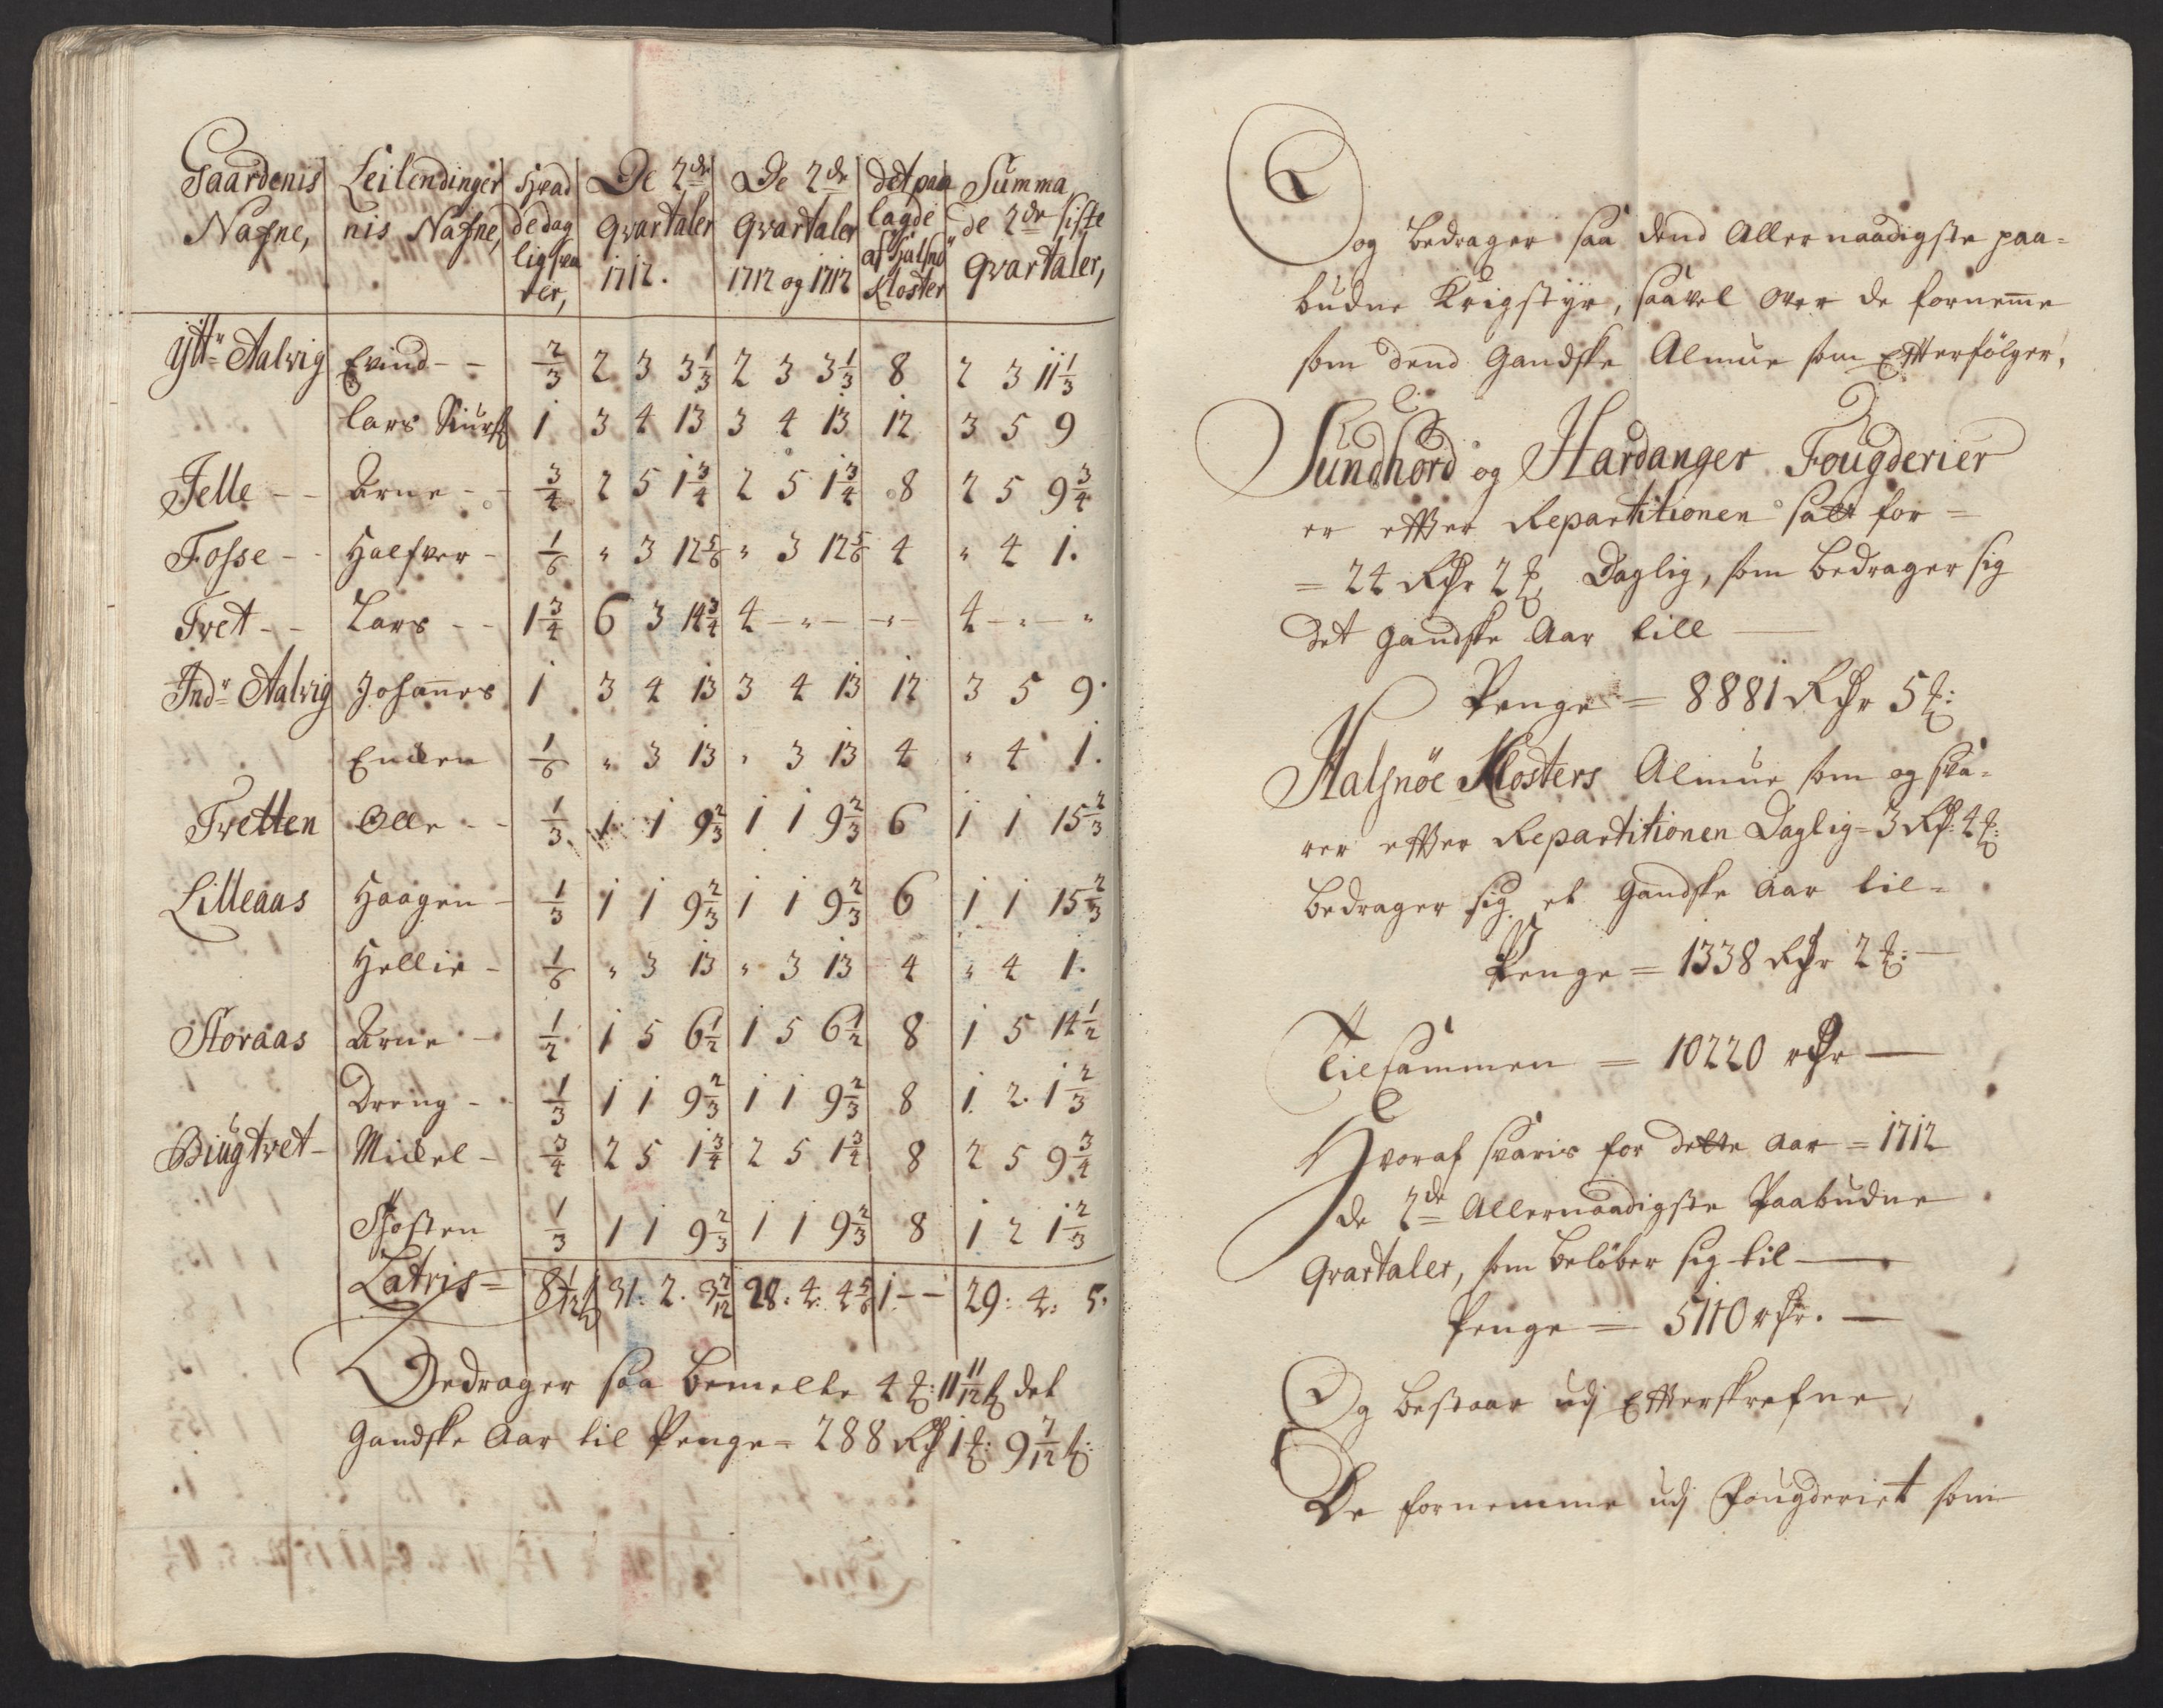 Gaardenis | Leilendinger | Hvad | De 2de | De 2de | det paa | Summa
Nafne, | nis Nafne, | de dag | Qvartaler | Qvartaler | lagde | de 2de siste
lig sva | 1712. | 1712 og 1712 | af Hjalsnö | Qvartaler,
rer, | Kloster
Ytr Aalvig | Evind | 2/3 | 2 3 3 1/3 | 2 3 3 1/3 | 8 | 2 3 11 1/3
Lars | 1 | 3 4 13 | 3 4 13 | 12 | 3 5 9
Felle | Arne | 3/4 | 2 5 1 3/4 | 2 5 1 3/4 | 8 | 2 5 9 3/4
Fosse | Halfver | 1/6 | " 3 12 5/6 | " 3 12 5/6 | 4 | " 4 1.
Tvet | Lars | 1 3/4 | 6 3 14 3/4 | 4 - " - | - " - | 4 - " - "
Indr Aalvig | Johannes | 1 | 3 4 13 | 3 4 13 | 12 | 3 5 9.
Enken | 1/6 | " 3 13 | " 3 13 | 4 | " 4 1.
Tvetten | Olle | 1/3 | 1 1 9 2/3 | 1 1 9 2/3 | 6 | 1 1 15 2/3
Lilleaas | Haagen | 1/3 | 1 1 9 2/3 | 1 1 9 2/3 | 6 | 1 1 15 2/3
Hellie | 1/6 | " 3 13 | " 3 13 | 4 | " 4 1.
Storaas | Arne | 1/2 | 1 5 6 1/2 | 1 5 6 1/2 | 8 | 1 5 14 1/2
Dreng | 1/3 | 1 1 9 2/3 | 1 1 9 2/3 | 8 | 1. 2. 1 2/3
Biugtvet | Mickel | 3/4 | 2 5 1 3/4 | 2 5 1 3/4 | 8 | 2 5 9 3/4
Tosten | 1/3 | 1 1 9 2/3 | 1 1 9 2/3 | 8 | 1 2 1 2/3
Latris = | 8 1/12 ß | 31. 2. 3 2/12 | 28. 4. 4 5/6 | 1 - - | 29: 4: 5.
Bedrager saa bemelte 4 ꝑ: 11 11/12 ß det
Gandske Aar til Penge = 288 Rdr 1 ꝑ: 9 7/12 ß:
Og bedrager saa dend Allernaadigste paa=
budne Krigstyr, saavel over de fornemme
som dend Gandske Almue som Efterfölger,
Sundhord og Hardanger Fougderier
er efter Repartitionen satt for =
= 24 Rdr 2 ꝑ Daglig, som bedrager sig
det gandske Aar till
Penge = 8881 Rdr 5 ꝑ:
Halsnöe Klosters Almue som og sva=
rer efter Repartitionen Daglig = 3 Rdr: 4 ꝑ:
bedrager sig et Gandske Aar til =
Penge = 1338 Rdr 2 ꝑ:
Tilsammen = 10220 rdr
Hvoraf svaris for dette Aar = 1712
de 2de Allernaadigste Paabudne
Qvartaler, som belöber sig til
Penge = 5110 rdr.
Og bestaar udj Efterskrefne,
De fornemme udj Fougderiet som